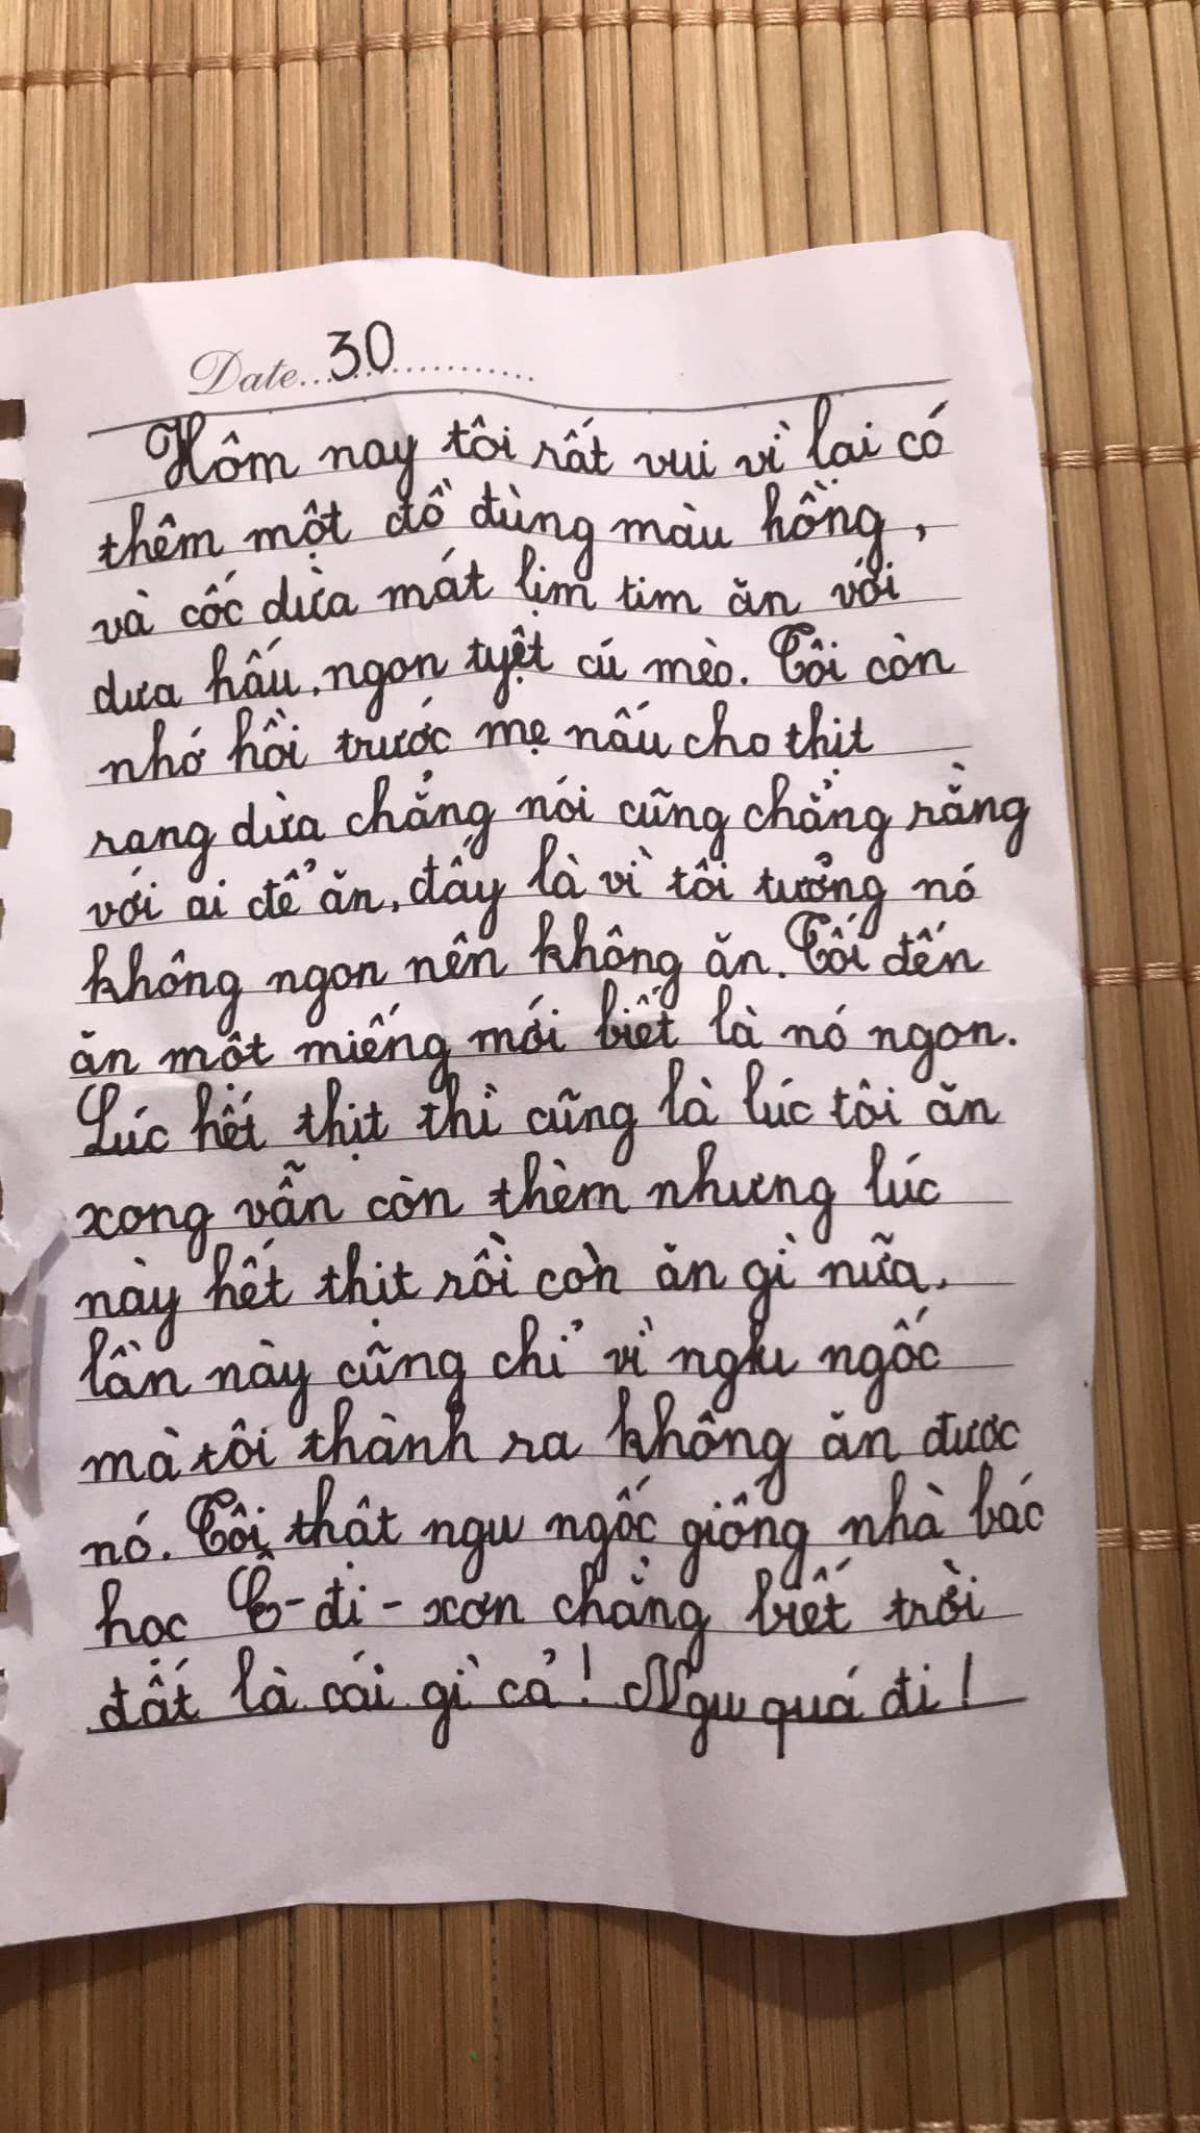 Date...30............
Hôm nay tôi rất vui vì lại có
thêm một đồ dùng màu hồng,
và cốc dừa mát lịm tim ăn với
dưa hấu, ngon tuyệt cú mèo. Tôi còn
nhớ hồi trước mẹ nấu cho thịt
rang dừa chẳng nói cũng chẳng rằng
với ai để ăn, đấy là vì tôi tưởng nó
không ngon nên không ăn. Tối đến
ăn một miếng mới biết là nó ngon.
Lúc hết thịt thì cũng là lúc tôi ăn
xong vẫn còn thèm nhưng lúc
này hết thịt rồi còn ăn gì nữa.
lần này cũng chỉ vì ngu ngốc
mà tôi thành ra không ăn được
nó. Tôi thật ngu ngốc giống nhà bác
học Ê-đi-xơn chẳng biết trời
đất là cái gì cả! Ngu quá đi!